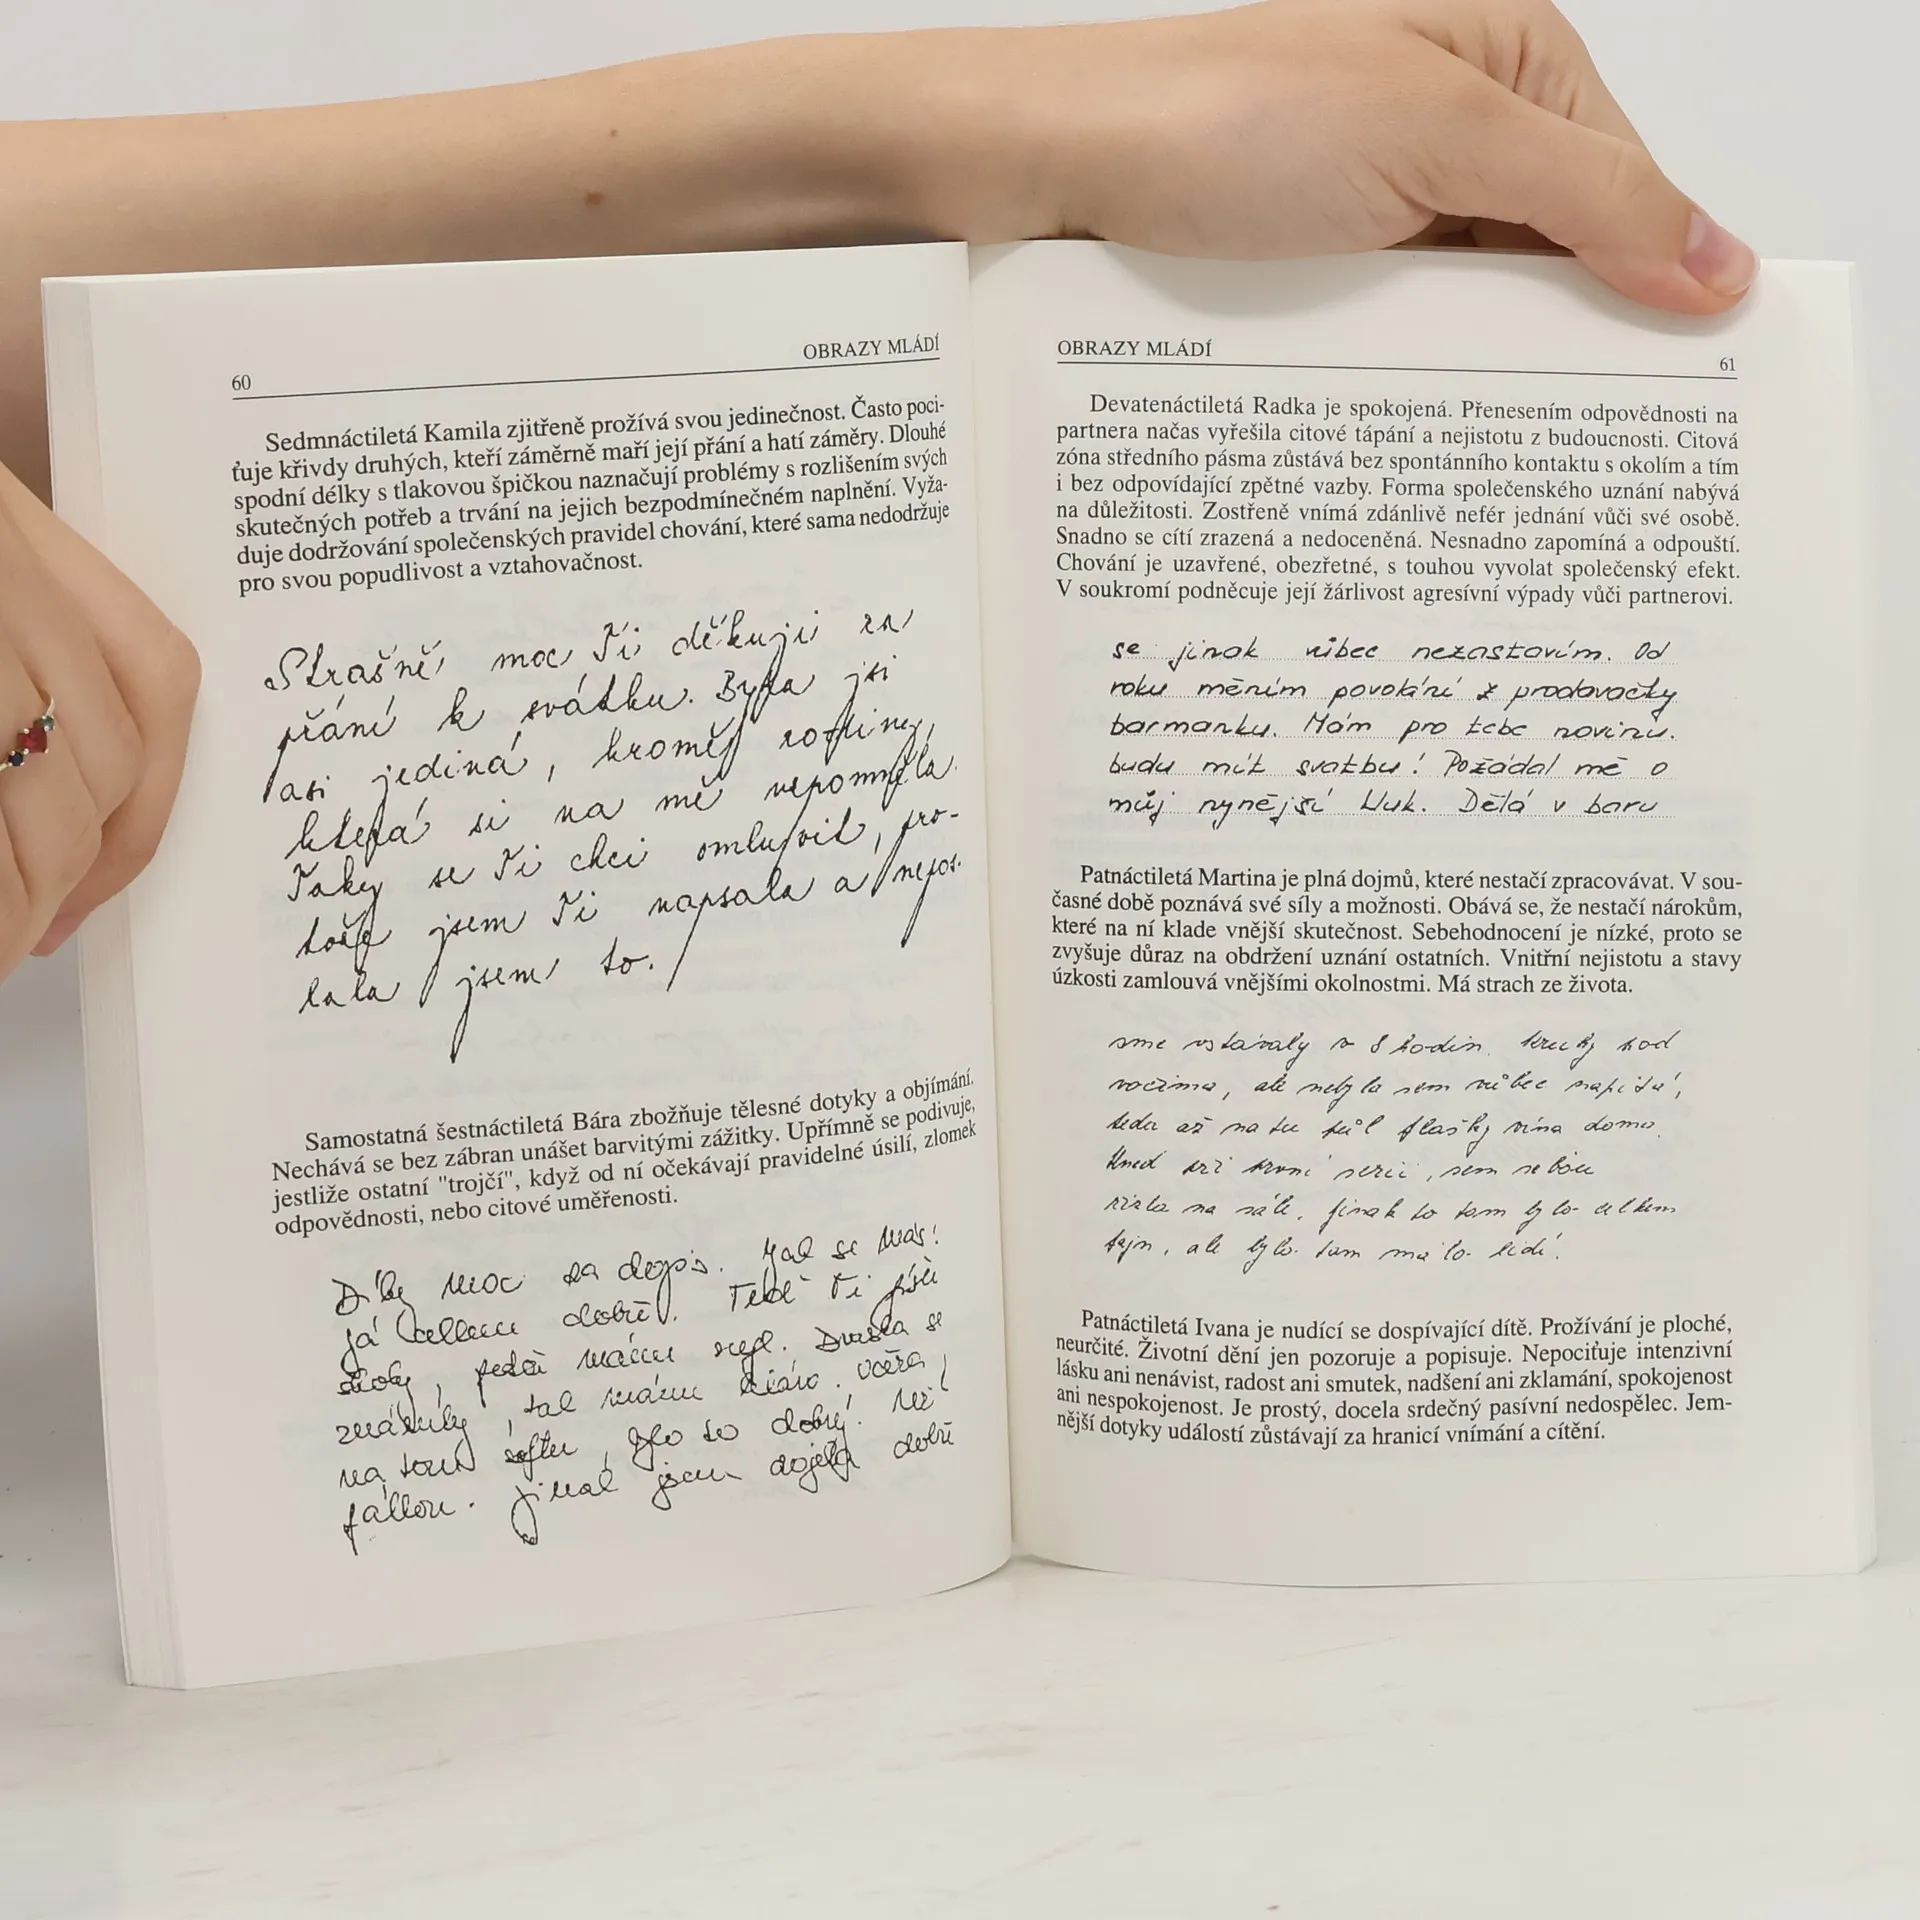 60
OBRAZY MLÁDÍ
Sedmnáctiletá Kamila zjitřeně prožívá svou jedinečnost. Často poci-
ťuje křivdy druhých, kteří záměrně maří její přání a hatí záměry. Dlouhé
spodní délky s tlakovou špičkou naznačují problémy s rozlišením svých
skutečných potřeb a trvání na jejich bezpodmínečném naplnění. Vyža-
duje dodržování společenských pravidel chování, které sama nedodržuje
pro svou popudlivost a vztahovačnost.
Strašně moc Ti děkuji za
přání k svátku. Byla jsi
asi jediná, kromě rodiny,
která si na mě vzpomněla.
Taky se Ti chci omluvit, pro-
tože jsem Ti napsala a nepos-
lala jsem to.
Samostatná šestnáctiletá Bára zbožňuje tělesné dotyky a objímání.
Nechává se bez zábran unášet barvitými zážitky. Upřímně se podivuje,
jestliže ostatní "trojčí", když od ní očekávají pravidelné úsilí, zlomek
odpovědnosti, nebo citové uměřenosti.
Díky moc za dopis. Jak se máš?
Já celkem dobře. Teď Ti píši
máme Dneska se
tak máme včera
na tom bylo to dobrý. Než
jinak jsem dojela dobře
OBRAZY MLÁDÍ
61
Devatenáctiletá Radka je spokojená. Přenesením odpovědnosti na
partnera načas vyřešila citové tápání a nejistotu z budoucnosti. Citová
zóna středního pásma zůstává bez spontánního kontaktu s okolím a tím
i bez odpovídající zpětné vazby. Forma společenského uznání nabývá
na důležitosti. Zostřeně vnímá zdánlivě nefér jednání vůči své osobě.
Snadno se cítí zrazená a nedoceněná. Nesnadno zapomíná a odpouští.
Chování je uzavřené, obezřetné, s touhou vyvolat společenský efekt.
V soukromí podněcuje její žárlivost agresívní výpady vůči partnerovi.
se jinak vůbec nezastavím. Od
roku měním povolání z prodavačky
barmanku. Mám pro tebe novinu.
budu mít svatbu! Požádal mě o
můj nynější kluk. Dělá v baru
Patnáctiletá Martina je plná dojmů, které nestačí zpracovávat. V sou-
časné době poznává své síly a možnosti. Obává se, že nestačí nárokům,
které na ní klade vnější skutečnost. Sebehodnocení je nízké, proto se
zvyšuje důraz na obdržení uznání ostatních. Vnitřní nejistotu a stavy
úzkosti zamlouvá vnějšími okolnostmi. Má strach ze života.
sme vstávaly v 8 hodin. kruhy pod
vočima, ale nebyla sem vůbec napitá,
teda až na tu půl flašky vína doma.
Hned při první serii, sem sebou
na sále, jinak to tam bylo celkem
fajn, ale bylo tam málo lidí.
Patnáctiletá Ivana je nudící se dospívající dítě. Prožívání je ploché,
neurčité. Životní dění jen pozoruje a popisuje. Nepociťuje intenzivní
lásku ani nenávist, radost ani smutek, nadšení ani zklamání, spokojenost
ani nespokojenost. Je prostý, docela srdečný pasívní nedospělec. Jem-
nější dotyky událostí zůstávají za hranicí vnímání a cítění.